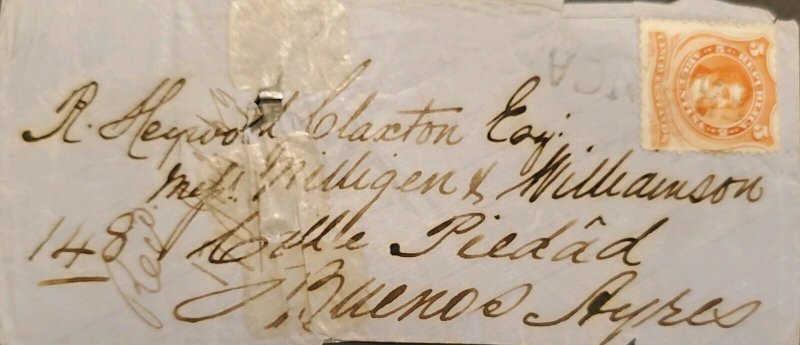 R. Heywood Claxton Esq:
Messrs. Milligen & Williamson
148 Calle Piedâd
Buenos Ayres
Recd.
5 5